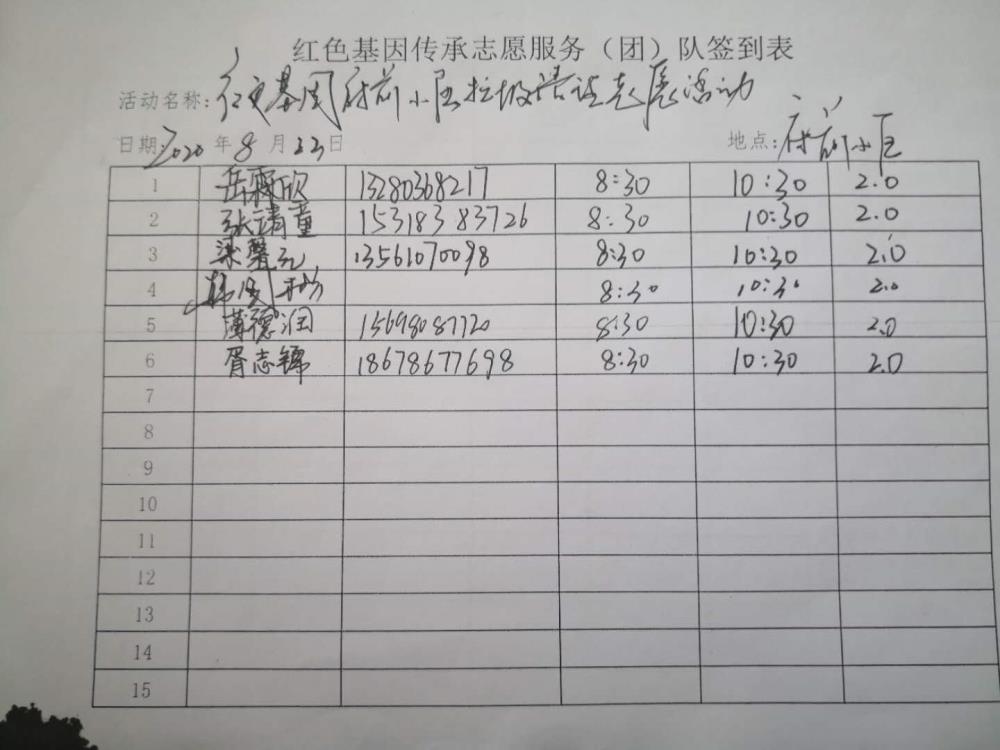 红色基因传承志愿服务（团）队签到表
活动名称：红色基因府前小区垃圾
活动
日期：2020年8月22日 地点：府前小区
1 岳霖欣 13280368217 8:30 10:30 2.0
2 张靖童 15318383726 8:30 10:30 2.0
3 梁馨元 13561070098 8:30 10:30 2.0
4 8:30 10:30 2.0
5 薄德润 15698087720 8:30 10:30 2.0
6 胥志锦 18678677698 8:30 10:30 2.0
7
8
9
10
11
12
13
14
15